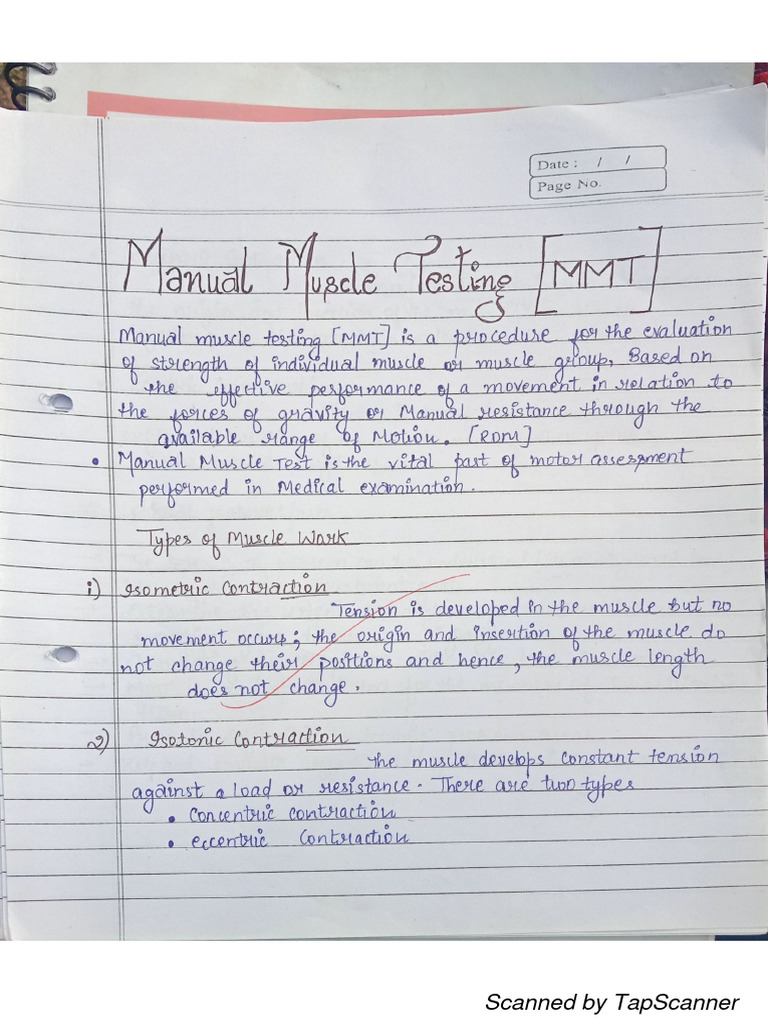 Date : / /
Page No.
Manual Muscle Testing [MMT]
Manual muscle testing [MMT] is a procedure for the evaluation
of strength of individual muscle or muscle group, Based on
the effective performance of a movement in relation to
the forces of gravity or Manual resistance through the
available range of Motion. [ROM]
• Manual Muscle Test is the vital part of motor assessment
performed in Medical examination.
Types of Muscle Work
i) Isometric Contraction
Tension is developed in the muscle but no
movement occurs; the origin and insertion of the muscle do
not change their positions and hence, the muscle length
does not change.
2) Isotonic Contraction
the muscle develops constant tension
against a load or resistance. There are two types
• Concentric contraction
• eccentric contraction
Scanned by TapScanner